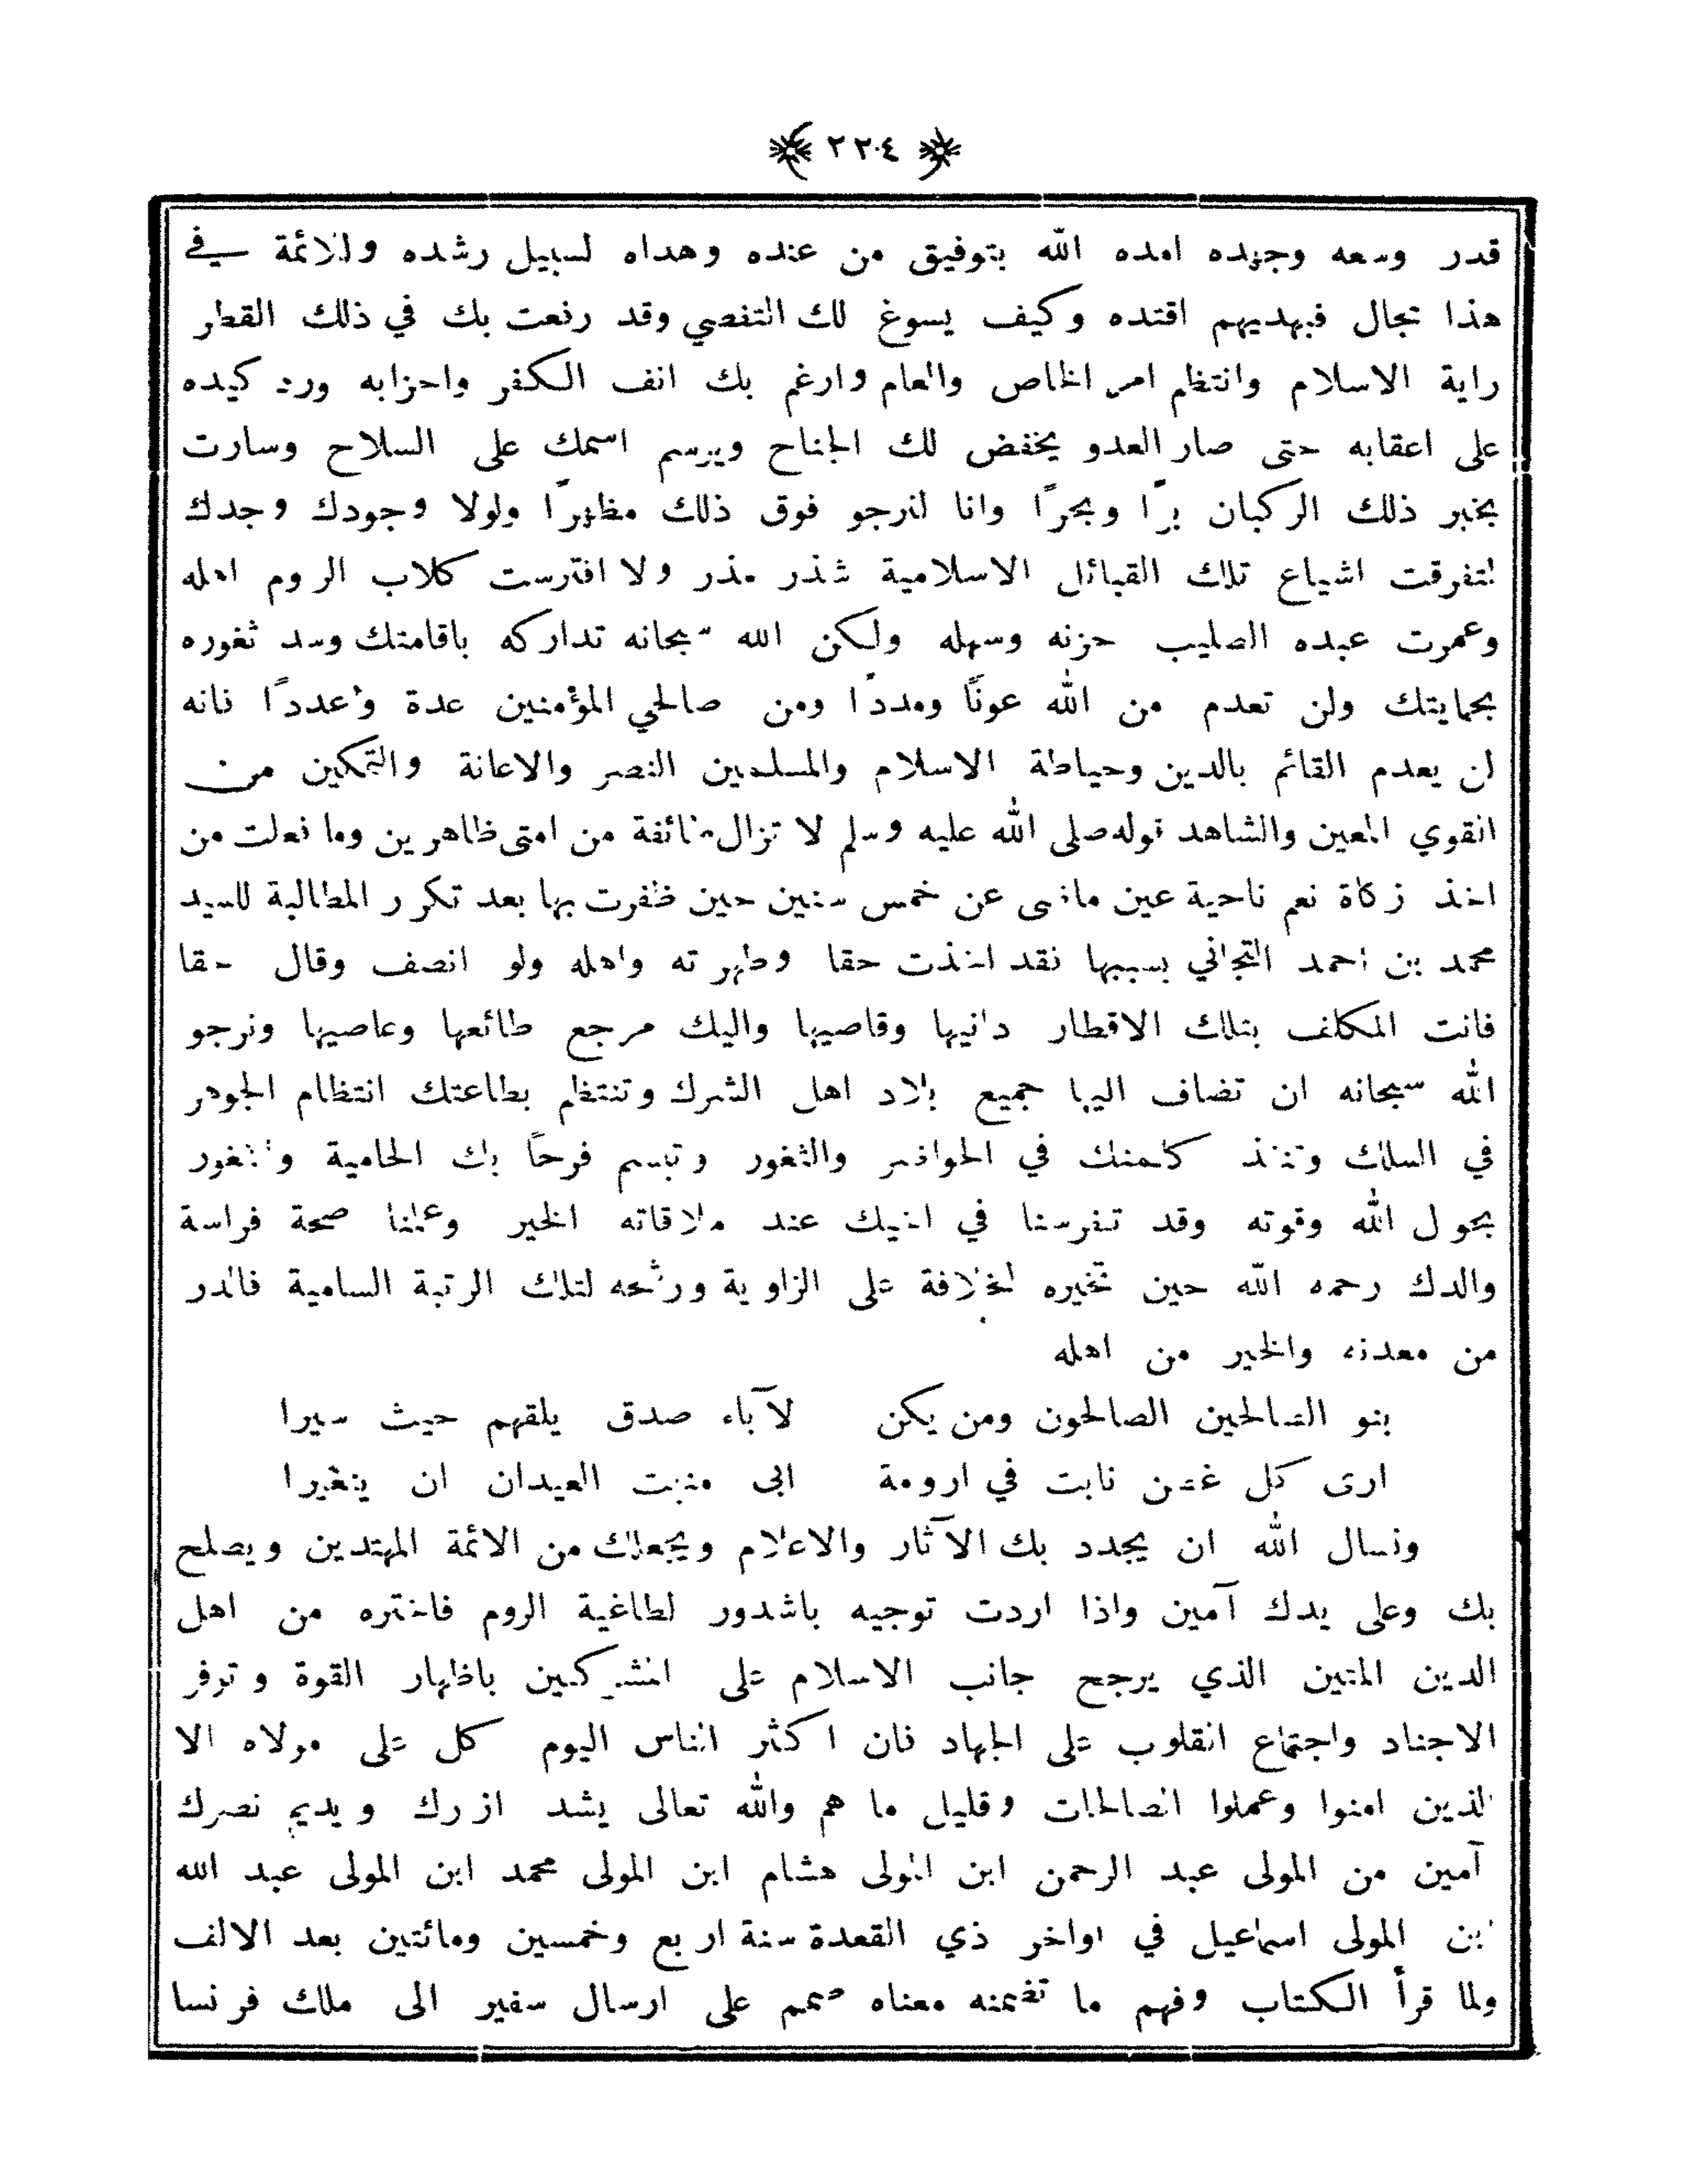 ٢٢٤
قدر وسعه وجهده امده الله بتوفيق من عنده وهداه لسبيل رشده وللائمة في
هذا مجال فبهديهم اقتده وكيف يسوغ لك التفصي وقد رفعت بك في ذلك القطر
راية الاسلام وانتظم امر الخاص والعام وارغم بك انف الكفر واحزابه ورد كيده
على اعقابه حتى صار العدو يخفض لك الجناح ويرسم اسمك على السلاح وسارت
بخبر ذلك الركبان برًا وبحرًا وانا لنرجو فوق ذلك مظهرًا ولولا وجودك وجدك
لتفرقت اشياع تلك القبائل الاسلامية شذر مذر ولا افترست كلاب الروم اهله
وعمرت عبده الصليب حزنه وسهله ولكن الله سبحانه تداركه باقامتك وسد ثغوره
بحمايتك ولن تعدم من الله عونًا ومددًا ومن صالحي المؤمنين عدة وعددًا فانه
لن يعدم القائم بالدين وحياطة الاسلام والمسلمين النصر والاعانة والتمكين من
القوي المعين والشاهد قوله صلى الله عليه وسلم لا تزال طائفة من امتى ظاهرين وما فعلت من
اخذ زكاة نعم ناحية عين ماضى عن خمس سنين حين ظفرت بها بعد تكرر المطالبة للسيد
محمد بن احمد التجاني بسببها فقد اخذت حقا وطهرته واهله ولو انصف وقال حقا
فانت المكلف بتلك الاقطار دانيها وقاصيها واليك مرجع طائعها وعاصيها ونرجو
الله سبحانه ان تضاف اليها جميع بلاد اهل الشرك وتنتظم بطاعتك انتظام الجوهر
في السلك وتنفذ كلمتك في الحواضر والثغور وتبسم فرحًا بك الحامية والثغور
بحول الله وقوته وقد تفرسنا في اخيك عند ملاقاته الخير وعلمنا صحة فراسة
والدك رحمه الله حين تخيره لخلافة على الزاوية ورشحه لتلك الرتبة السامية فالدر
من معدنه والخير من اهله
بنو الصالحين الصالحون ومن يكن لآباء صدق يلقهم حيث سيرا
ارى كل غصن نابت في ارومة ابى منبت العيدان ان يتغيرا
ونسال الله ان يجدد بك الآثار والاعلام ويجعلك من الائمة المهتدين ويصلح
بك وعلى يدك آمين واذا اردت توجيه باشدور لطاغية الروم فاختره من اهل
الدين المتين الذي يرجح جانب الاسلام على المشركين باظهار القوة وتوفر
الاجناد واجتماع القلوب على الجهاد فان اكثر الناس اليوم كل على مولاه الا
الذين امنوا وعملوا الصالحات وقليل ما هم والله تعالى يشد ازرك ويديم نصرك
آمين من المولى عبد الرحمن ابن المولى هشام ابن المولى محمد ابن المولى عبد الله
ابن المولى اسماعيل في اواخر ذي القعدة سنة اربع وخمسين ومائتين بعد الالف
ولما قرأ الكتاب وفهم ما تضمنه معناه صمم على ارسال سفير الى ملك فرنسا